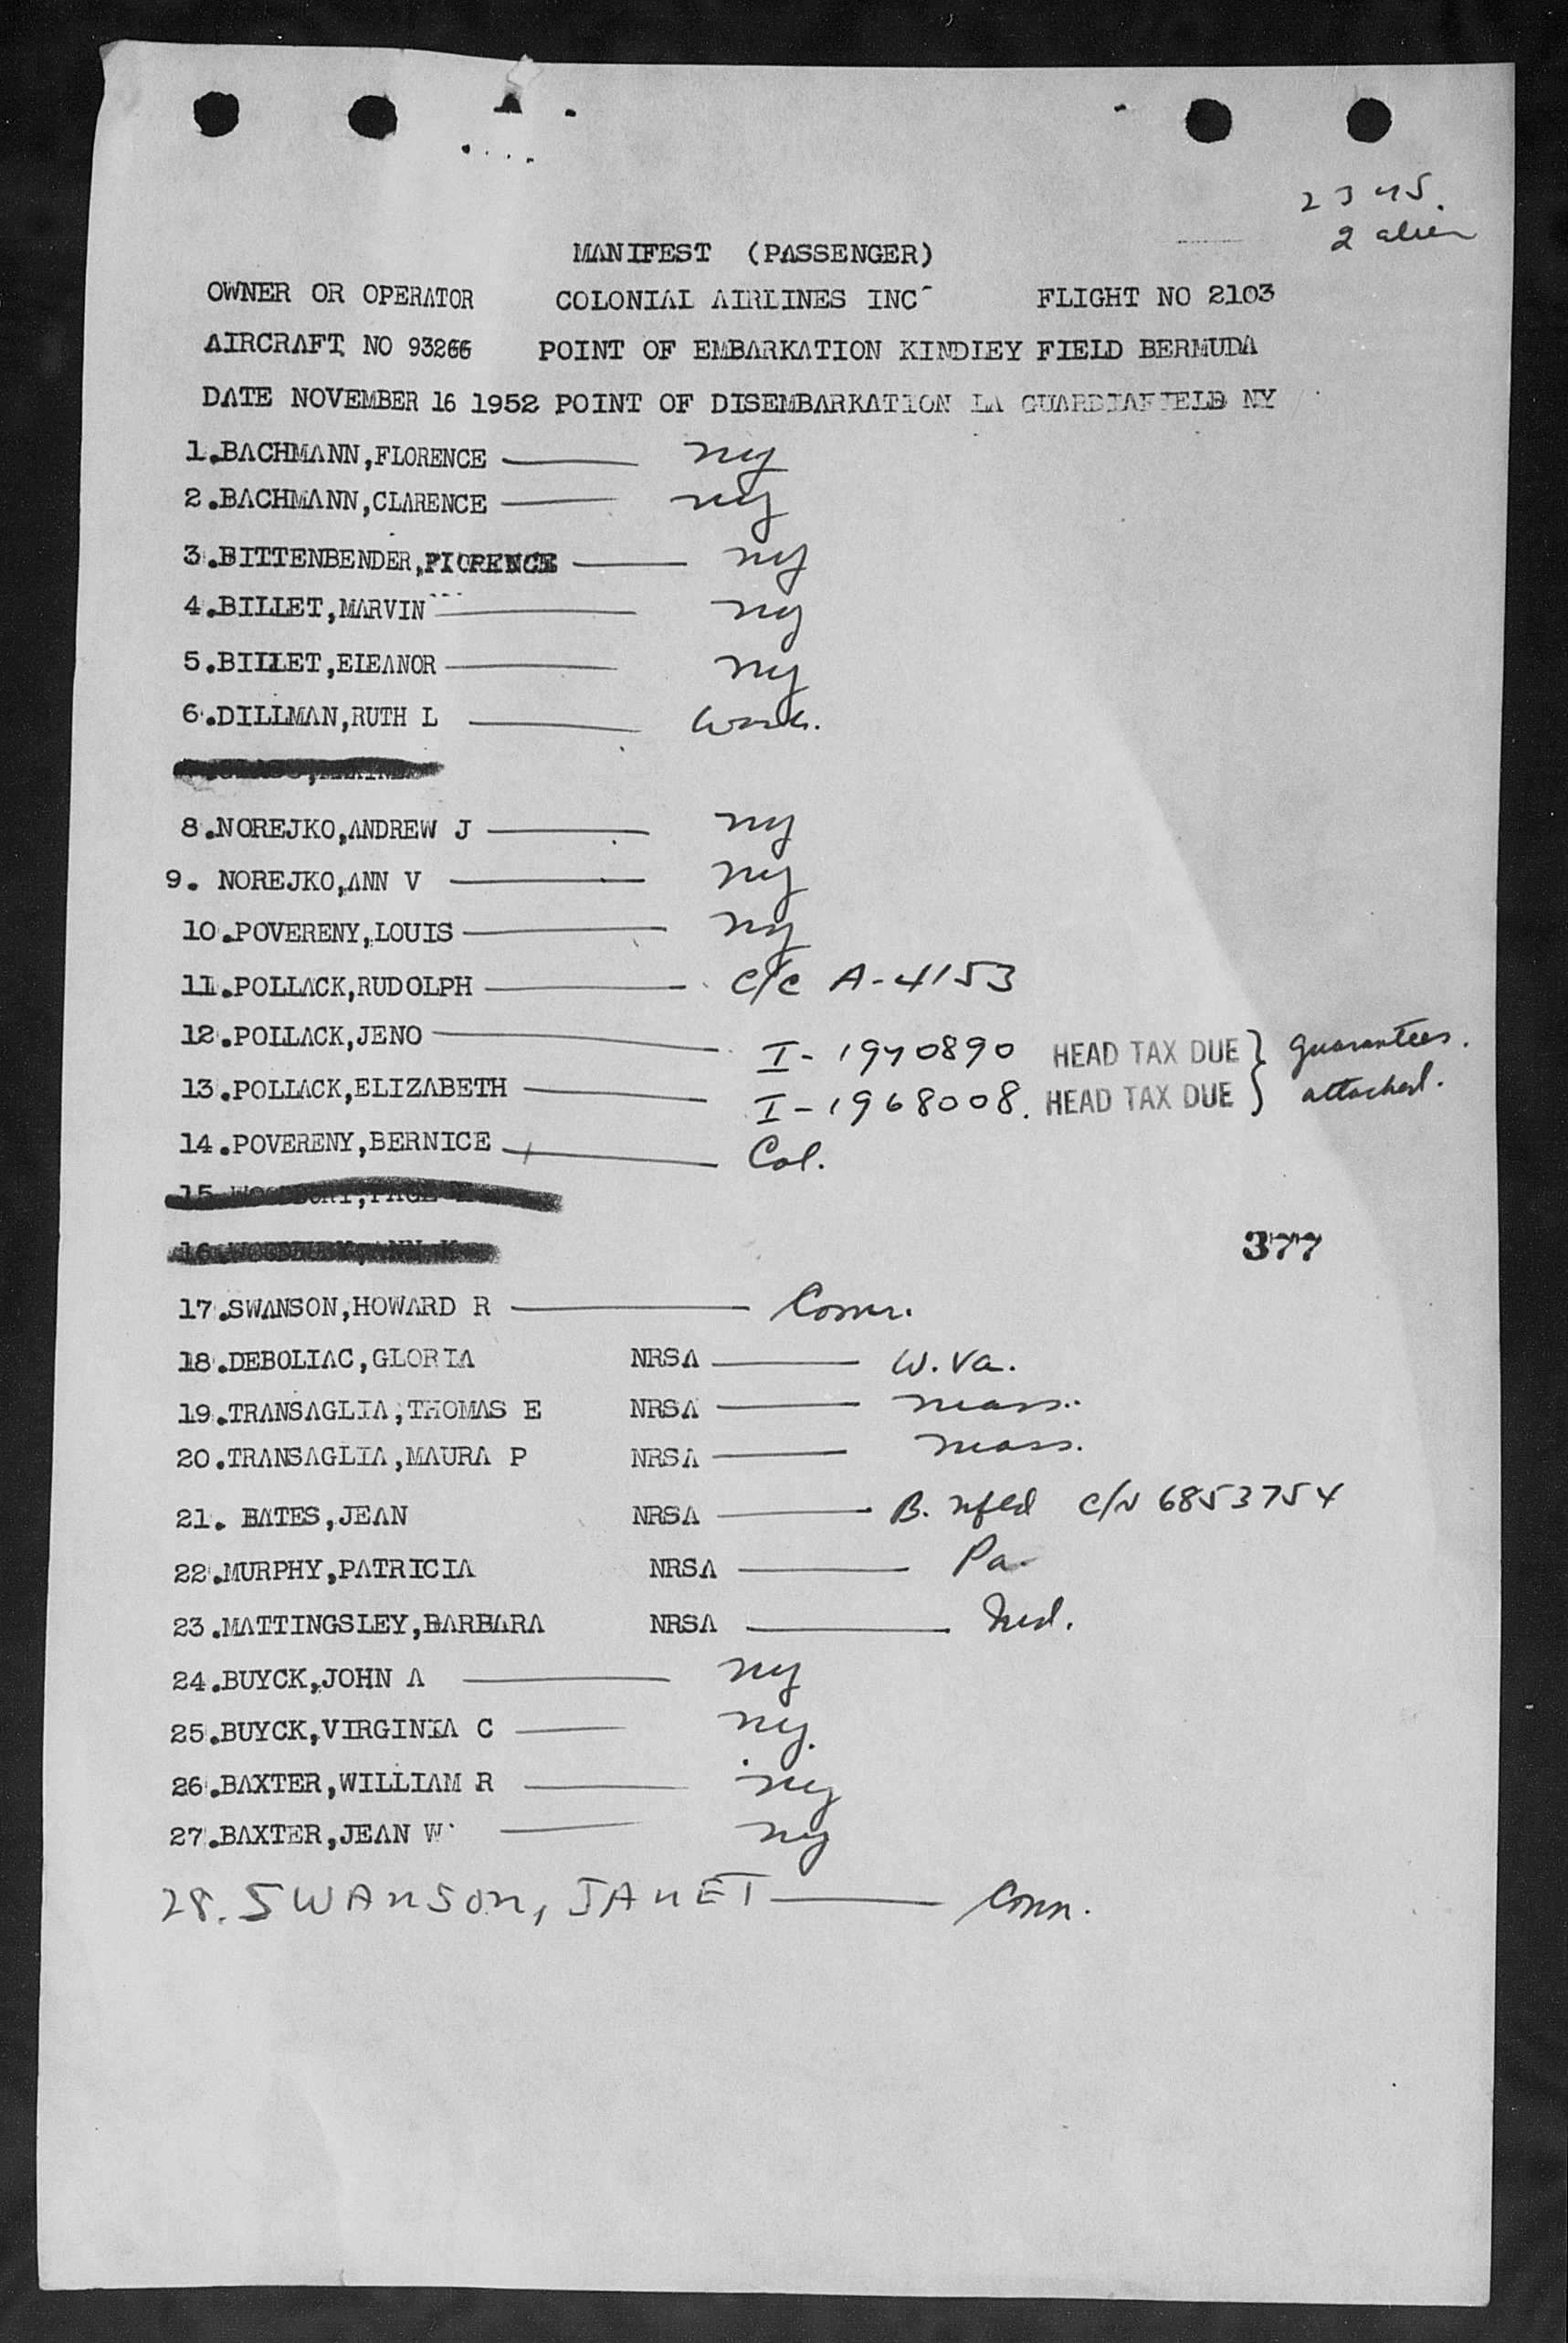 23 US.
2 alien
MANIFEST (PASSENGER)
OWNER OR OPERATOR COLONIAL AIRLINES INC FLIGHT NO 2103
AIRCRAFT NO 93266 POINT OF EMBARKATION KINDLEY FIELD BERMUDA
DATE NOVEMBER 16 1952 POINT OF DISEMBARKATION LA GUARDIAFIELD NY
1.BACHMANN,FLORENCE NY
2.BACHMANN,CLARENCE NY
3.BITTENBENDER,FLORENCE NY
4.BILLET,MARVIN NY
5.BILLET,ELEANOR NY
6.DILLMAN,RUTH L Wash.
8.NOREJKO,ANDREW J NY
9. NOREJKO,ANN V NY
10.POVERENY,LOUIS NY
11.POLLACK,RUDOLPH C/C A-4153
12.POLLACK,JENO I-1940890 HEAD TAX DUE } guarantees.
13.POLLACK,ELIZABETH I-1968008. HEAD TAX DUE } attached.
14.POVERENY,BERNICE Col.
15
16 ANN K
377
17.SWANSON,HOWARD R Conn.
18.DEBOLIAC,GLORIA NRSA W.Va.
19.TRANSAGLIA,THOMAS E NRSA Mass.
20.TRANSAGLIA,MAURA P NRSA Mass.
21. BATES,JEAN NRSA B. Nfld C/N 6853754
22.MURPHY,PATRICIA NRSA Pa.
23.MATTINGSLEY,BARBARA NRSA Md.
24.BUYCK,JOHN A NY
25.BUYCK,VIRGINIA C NY.
26.BAXTER,WILLIAM R NY
27.BAXTER,JEAN W NY
28. SWANSON, JANET Conn.